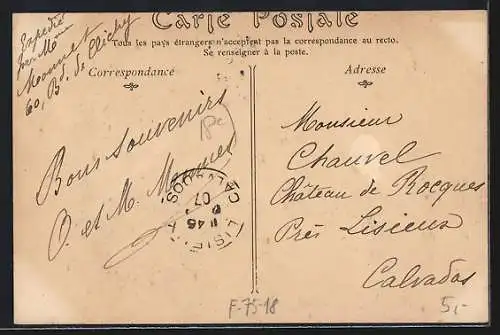 Carte Postale
Tous les pays étrangers n'acceptent pas la correspondance au recto.
Se renseigner à la poste.
Expédié
par M
Monnet
60, Bd. de Clichy
Correspondance
Bons Souvenirs
O. et M. Monnet
LISIEUX
11 45
07
CALVADOS
Adresse
Monsieur
Chauvel
Château de Rocques
Près Lisieux
Calvados
F-75-18
5,-